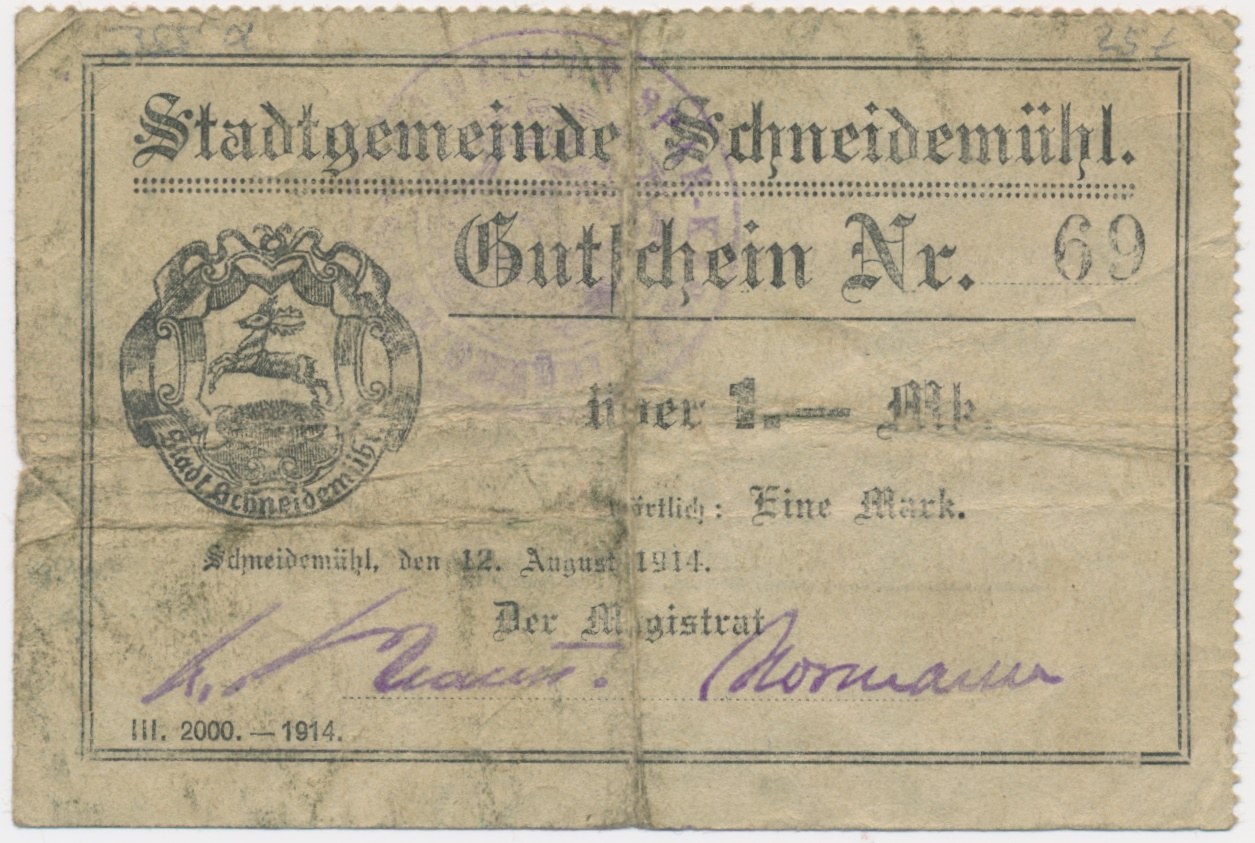 Stadtgemeinde Schneidemühl.
Gutschein Nr. 69
über 1.— Mk.
wörtlich: Eine Mark.
Stadt Schneidemühl.
Schneidemühl, den 12. August 1914.
Der Magistrat
III. 2000. — 1914.